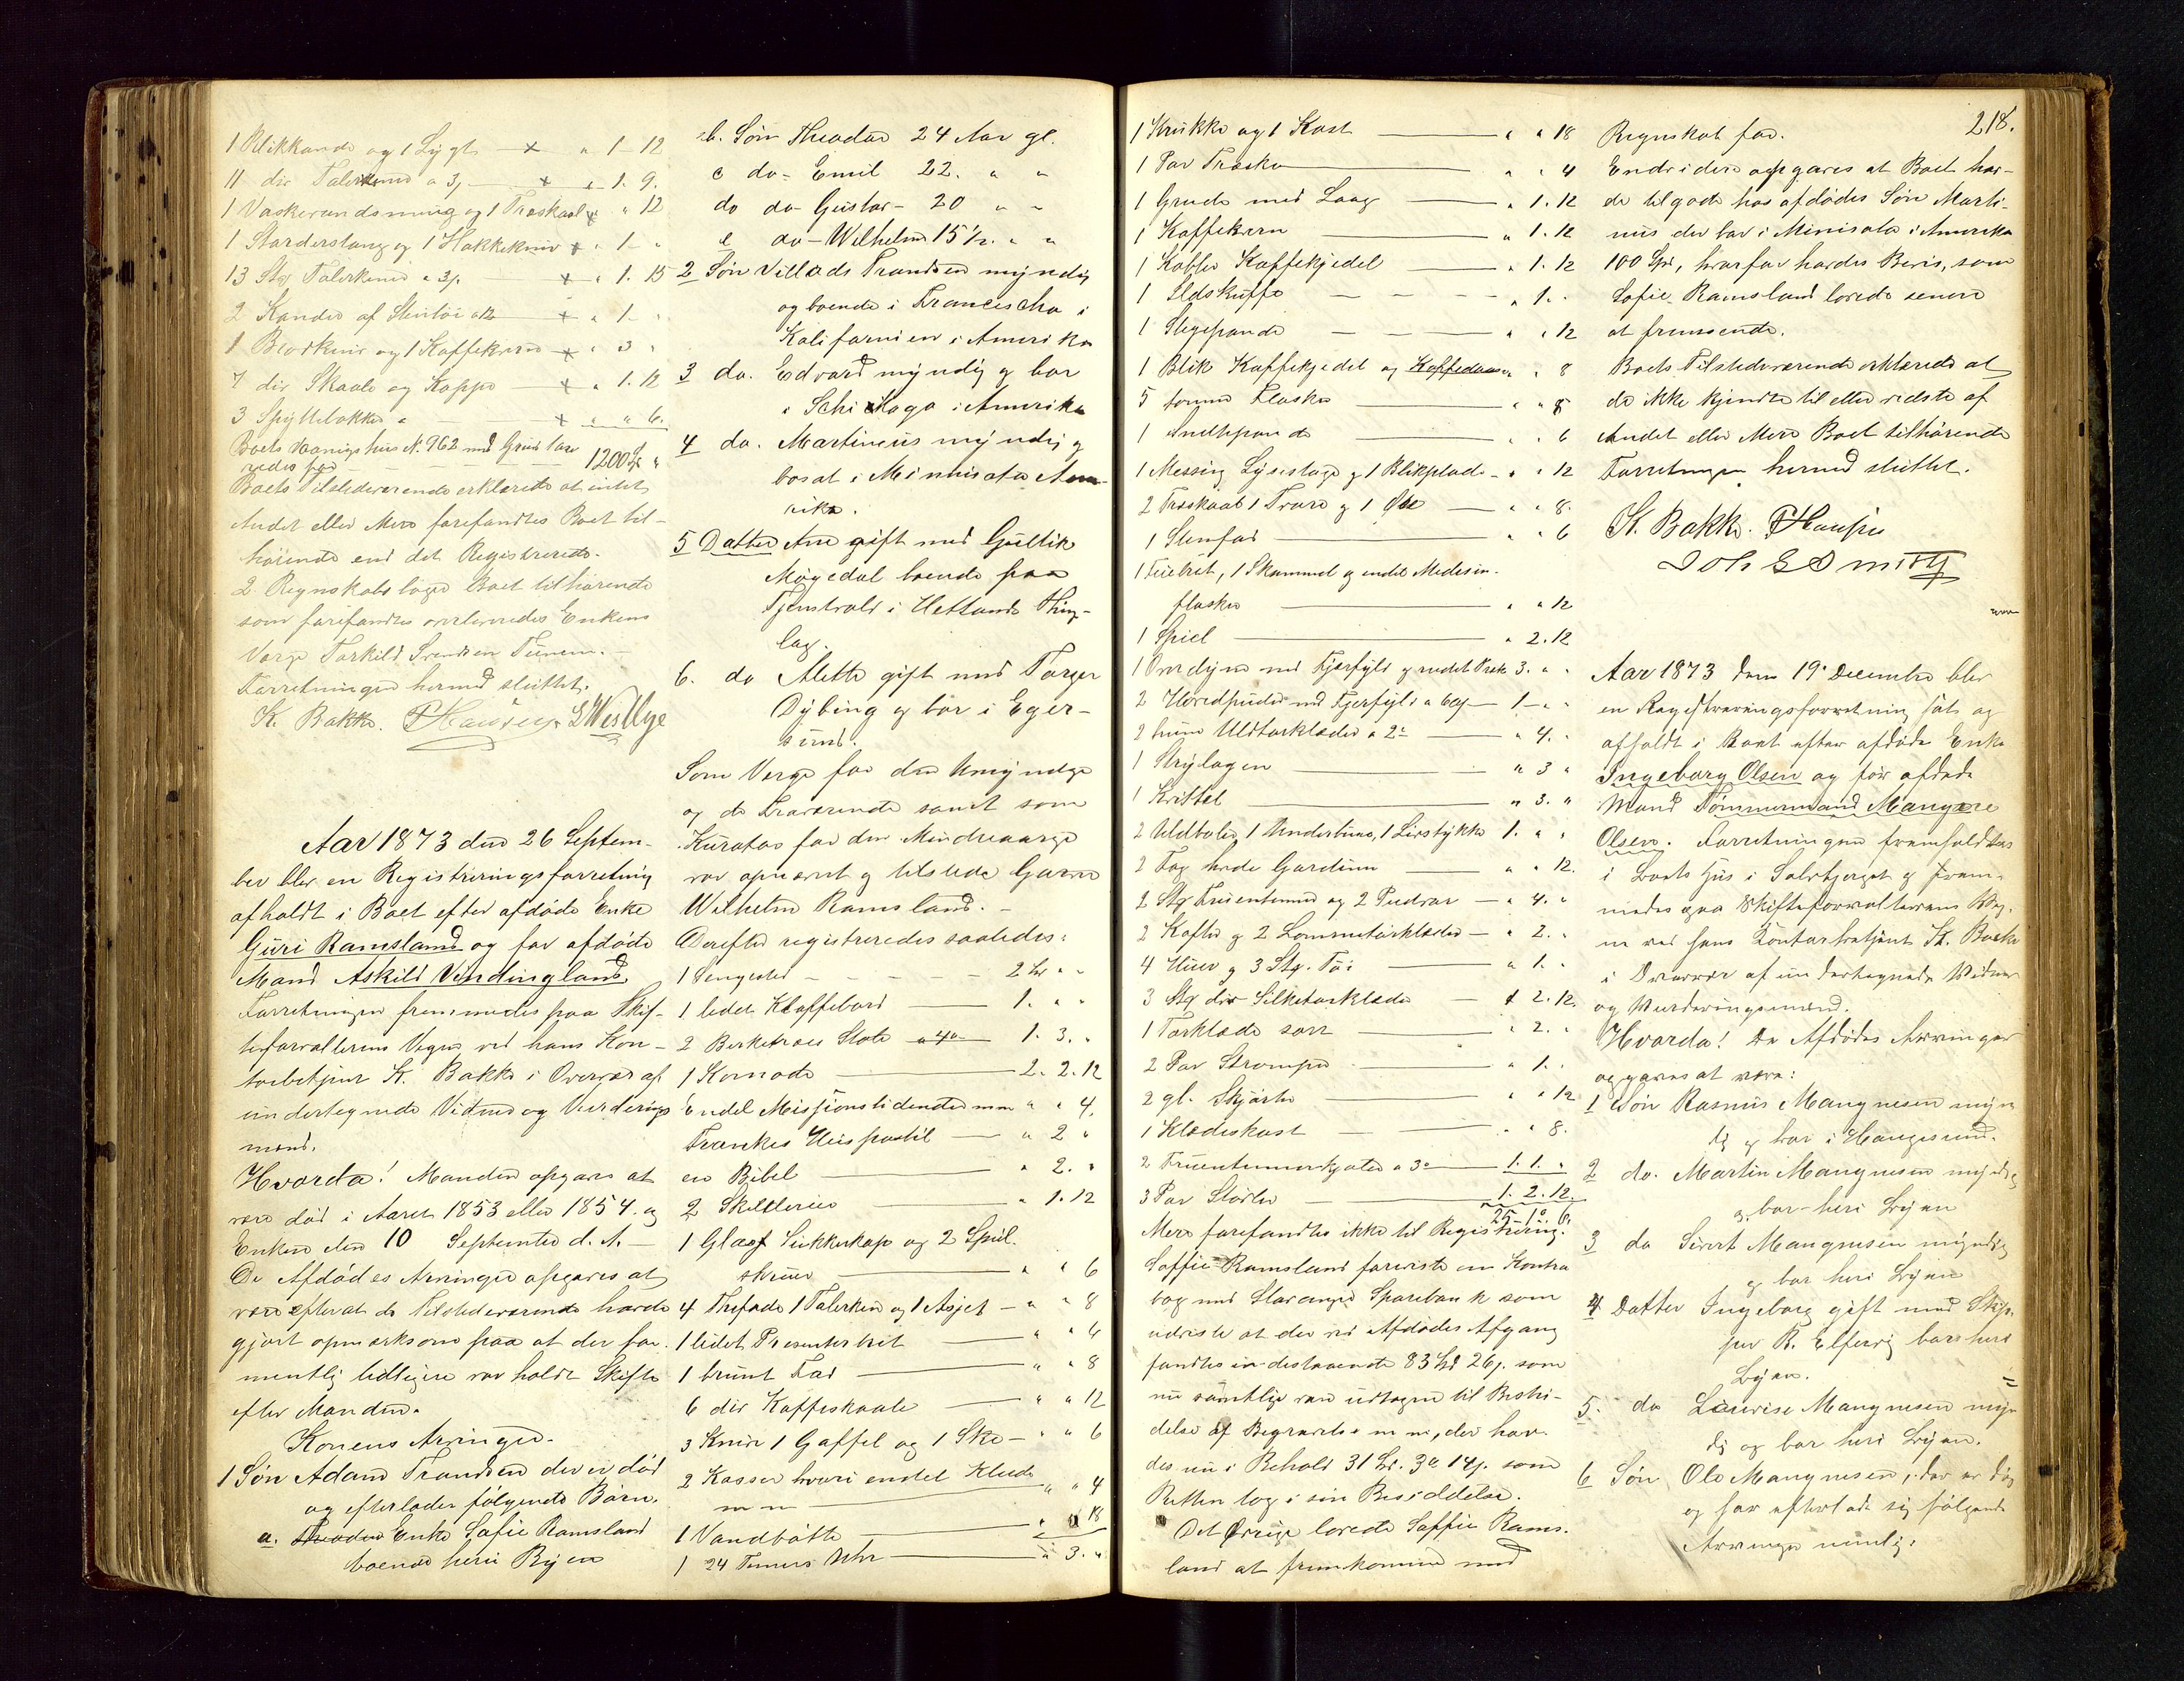 1 Blikkande og 1 Lygt — x " 1 - 12
11 div Talerkener a 3 — x " 1. 9.
1 Vaskevandsmug og 1 Træskaal x " " 12
1 Størderstang og 1 Hakkekniv x " 1 - "
13 Stg Talerkener a 3 x " 1. 15
2 Kander af Stentøi a 12 x " 1 - "
1 Brødkniv og 1 Kaffekværn x " 3 "
7 div Skaale og Koppe x " 1. 12
3 Spyttebakker x " " 6.
Boets Vaanigshus N. 962 med Grund taxe
redes for 1200 Sp "
Boets Tilstedeværende erklærede at intet
Andet eller Mere forefandtes Boet til-
hørende end det Registrerede.
2 Regnskabsbøger Boet tilhørende
som forefandtes overleveredes Enkens
Værge Torkild Svendsen Tunem.
Forretningen hermed sluttet.
K. Bakke. PHansen SWestlye
Aar 1873 den 26 Septem-
ber blev en Registreringsforretning
afholdt i Boet efter afdøde Enke
Guri Ramsland og før afdøde
Mand Askild Vendingland
Forretningen fremmedes paa Skif-
teforvalterens Vegne ved hans Kon-
torbetjent K. Bakke i Overvær af
undertegnede Vidner og Vurderings
mænd.
Hvorda! Manden opgaves at
være død i Aaret 1853 eller 1854. og
Enken den 10 September d. A. —
De Afdødes Arvinger opgaves at
være efterat de Tilstedeværende havde
gjort opmærksom paa at der for-
mentlig tidligere var holdt Skifte
efter Manden.
Konens Arvinger.
1 Søn Adam Trondsen der er død
og efterlader følgende Børn.
a. Enke Sofie Ramsland
boende heri Byen
b. Søn Theodor 24 Aar gl.
c do - Emil 22. " "
do do - Gustav - 20 " "
e do - Wilhelm 15 1/2. " "
2 Søn Villads Trondsen myndig
og boende i Francischo i
Kalifornien i Amerika
3 do. Edvard myndig og bor
i Schikago i Amerika
4 do. Martinius myndig og
bosat i Minnisota Ame-
rika.
5 Datter Ane gift med Gullik
Møgedal boende paa
Tjensvold i Hetlands Thing-
lag.
6. do Alette gift med Torger
Dybing og bor i Eger-
sund.
Som Verge for den Umyndige
og de Fraværende samt som
Kurator for den Mindreaarige
var opnævnt og tilstede Garver
Wilhelm Ramsland. -
Derefter registreredes saaledes:
1 Sengested - - - - 2 Sp " "
1 lidet Klaffebord — 1. " "
2 Birketræes Stole — 1. 3. "
1 Komode — 2. 2. 12
Endel Missionstidender m m " " 4.
Frankes Huspostil — " 2 "
en Bibel — " 2. "
2 Skilderier — " 1. 12
1 Glas Sukkerkop og 2 Spil.
skruer — " " 6
4 Thefade 1 Talerken og 1 Asjet — " " 8
1 lidet Presenterbret — " " 4
1 brunt Fad — " " 8
6 div Kaffeskaale — " " 12
3 Knive 1 Gaffel og 1 Ske — " " 6
2 Kasser hvori endel Klude
m m " " 4
1 Vandbøtte — " " 18
1 24 Timers Uhr — " 3. "
1 Krukke og 1 Kost — " " 18
1 Par Træsko — " " 4
1 Gryde med Laag — " 1. 12
1 Kaffekværn — " 1. 12
1 Kobber Kaffekjedel — " 1. 12
1 Ildskuffe - - - " 1. "
1 Stegepande - - - " " 12
1 Blik Kaffekjedel og Kaffedaase " " 8
5 tomme Flasker — " " 8
1 — " " 6
1 Messing Lysestage og 1 Blikplade - " " 12
2 Træskaal 1 Trave og 1 Øse — " " 8.
1 Stenfad — " " 6
1 Fuebret, 1 Skammel og endel Medesin.
flasker — " " 12
1 Speil — " 2. 12
1 Overdyne med Fjærfyld 3. " "
2 Hovedpuder med Fjerfyld a — 1 - " "
2 Uldtørklæder a 2 — " 4. "
1 Strylagen — " 3 "
1 Kittel — " 3. "
2 1 Undertrøie, 1 Livstykke 1. " "
2 Fag hvide Gardiner — " " 12.
2 Stg Fruentimmer og 2 Pudevar — " 4. "
2 Kofter og 2 Lommetørklæder — " 2. "
4 Huer og 3 Stg. Tøi — " 1. "
3 Stg div Silketørklæde — " 2. 12.
1 Tørklæde sort — " 2. "
2 Par Strømper — " 1. "
2 gl. Skjørter — " " 12
1 Klædeskost — " " 8.
2 Fruentimmerkjoler a 3 — 1. 1. "
3 Par Støvler — 1. 2. 12.
25 - 1. 6.
Mere forefandtes ikke til Registrering.
Soffie Ramsland foreviste en Kontra
bog med Stavanger Sparebank som
udviste at der ved Afdødes Afgang
fandtes indestaaende 83 Sp 26 s. som
nu samtlige var udtagne til Bestri-
delse af Begravelse m m, der hav-
des nu i Behold 31 Sp. 3 14 s. som
Retten tog i sin Besiddelse.
Det Øvrige lovede Soffie Rams-
land at fremkomme med
218.
Regnskab for.
Endvidere opgaves at Boet hav-
de tilgode hos afdødes Søn Marti-
nius der bor i Minisota i Amerika
100 Spd, hvorfor havdes Bevis, som
Sofie Ramsland lovede senere
at fremsende.
Boets Tilstedeværende erklærede at
de ikke kjendte til eller vidste af
Andet eller Mere Boet tilhørende
Forretningen hermed sluttet.
K. Bakke. PHansen
Joh S Smith
Aar 1873 den 19 December blev
en Registreringsforretning sat og
afholdt i Boet efter afdøde Enke
Ingeborg Olsen og før afdøde
Mand Tømmermand Mangne
Olsen. Forretningen fremholdtes
i Boets Hus i Solebjerget og frem-
medes paa Skifteforvalterens Veg-
ne ved hans Kontorbetjent K. Bakke
i Overvær af undertegnede Vidner
og Vurderingsmænd.
Hvorda! De Afdødes Arvinger
opgaves at være:
1 Søn Rasmus Mangnesen myn
dig og bor i Haugesund.
2 do. Martin Mangnesen myndig
og bor heri Byen
3 do Sivert Mangnesen myndig
og bor heri Byen
4 Datter Ingeborg gift med Skip-
per R. Elfevig boer heri
Byen.
5. do Lauvise Mangnesen myn
dig og bor heri Byen.
6 Søn Ole Mangnesen, der er død
og har efterladt sig følgende
Arvinger nemlig: